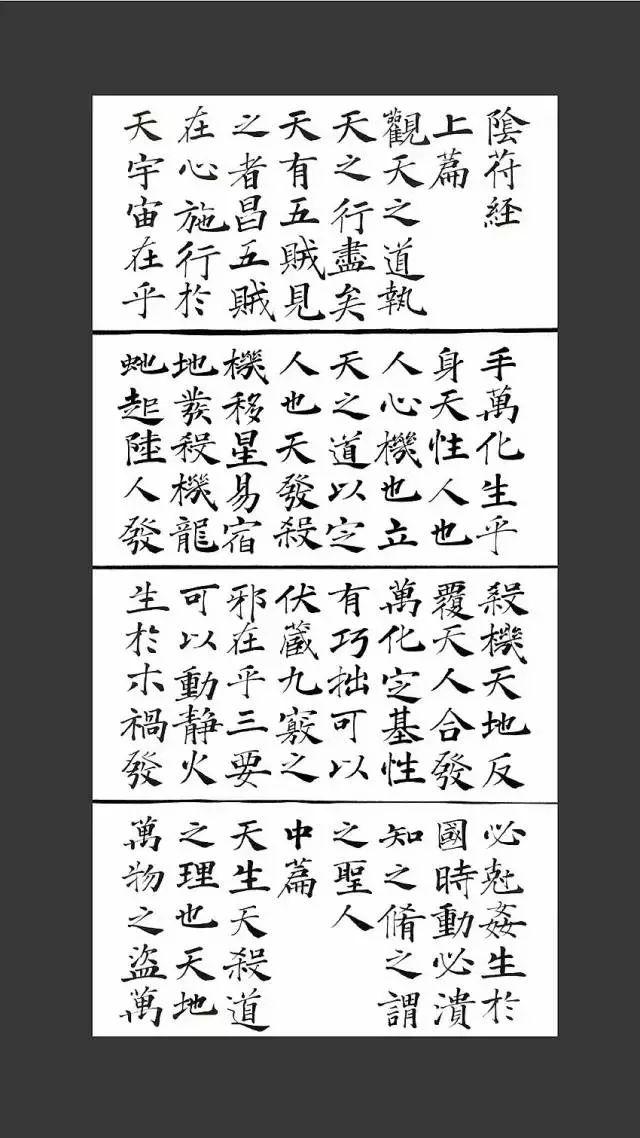 陰符経
上篇
觀天之道執
天之行盡矣
天有五賊見
之者昌五賊
在心施行於
天宇宙在乎
手萬化生乎
身天性人也
人心機也立
天之道以定
人也天發殺
機移星易宿
地發殺機龍
虵起陸人發
殺機天地反
覆天人合發
萬化定基性
有巧拙可以
伏蔵九竅之
邪在乎三要
可以動静火
生於木禍發
必尅姦生於
國時動必潰
知之脩之謂
之聖人
中篇
天生天殺道
之理也天地
萬物之盜萬